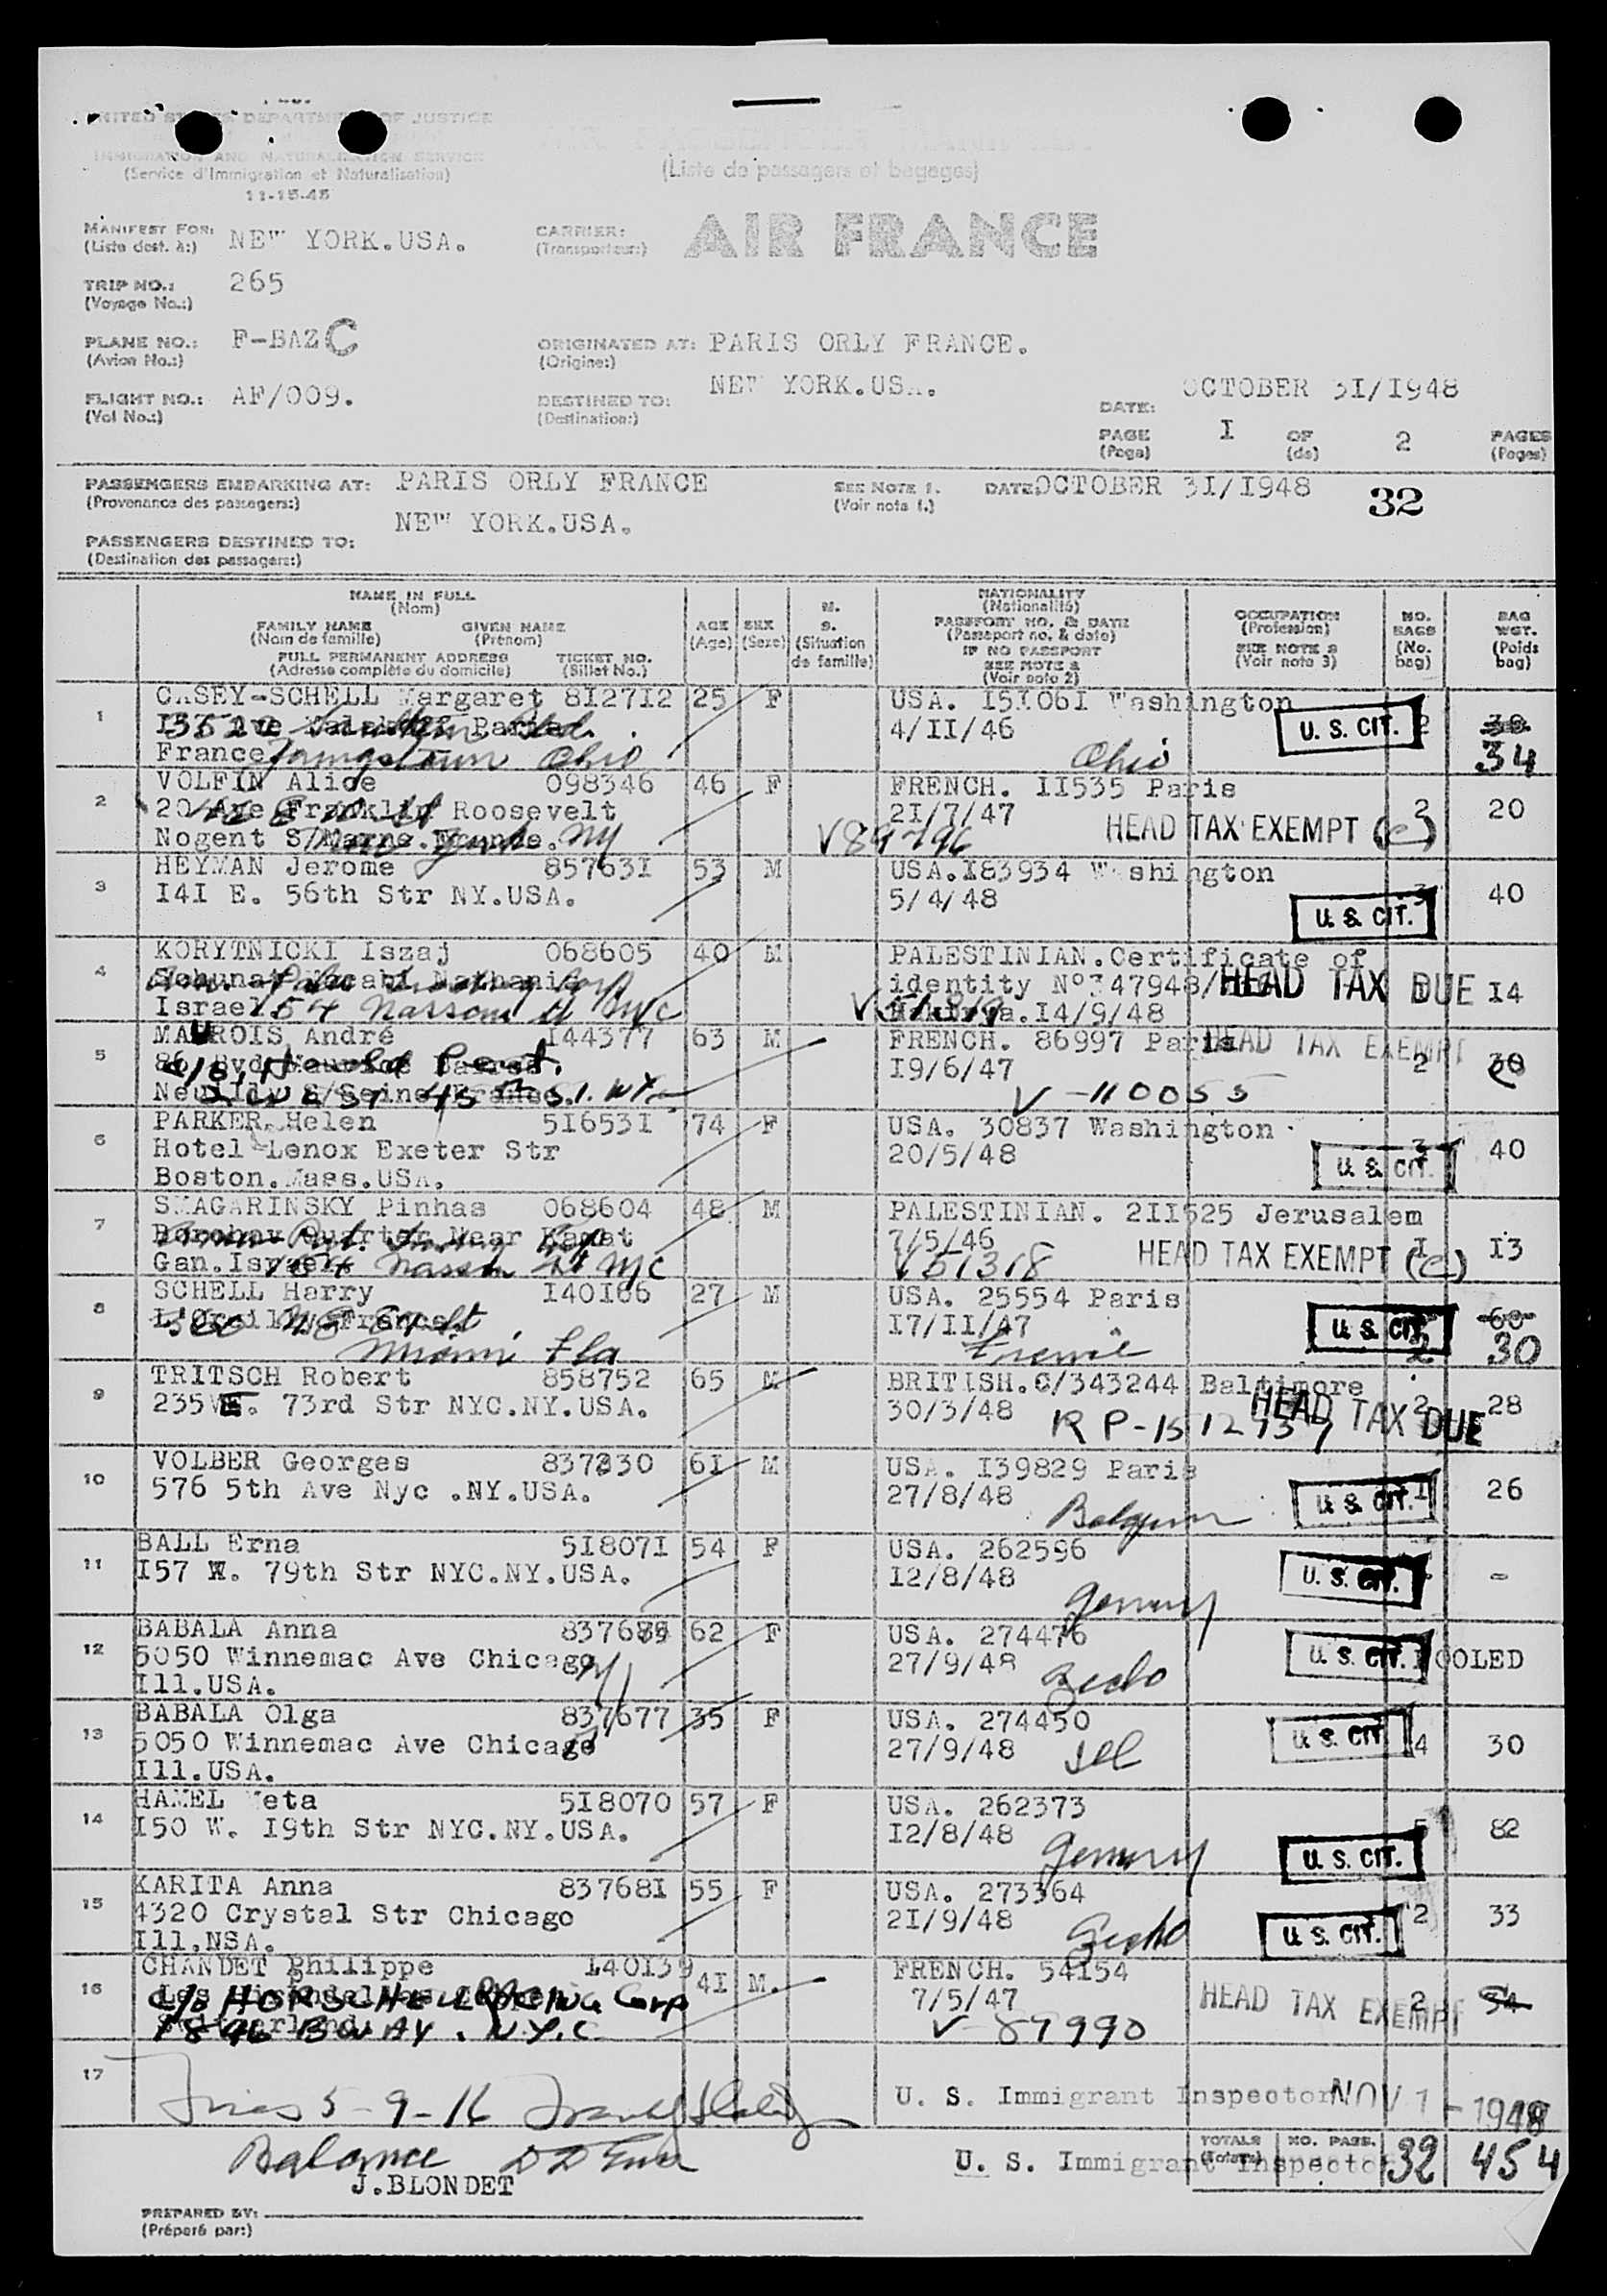 UNITED STATES DEPARTMENT OF JUSTICE
IMMIGRATION AND NATURALIZATION SERVICE
(Service d'Immigration et Naturalisation)
11-15-45
(Liste de passagers et bagages)
MANIFEST FOR: NEW YORK.USA.
(Liste dest. à:)
CARRIER: AIR FRANCE
(Transporteur:)
TRIP NO.: 265
(Voyage No.:)
PLANE NO.: F-BAZC
(Avion No.:)
ORIGINATED AT: PARIS ORLY FRANCE.
(Origine:)
FLIGHT NO.: AF/009.
(Vol No.:)
DESTINED TO: NEW YORK.USA.
(Destination:)
DATE: OCTOBER 3I/I948
PAGE I OF 2 PAGES
(Page) (de) (Pages)
PASSENGERS EMBARKING AT: PARIS ORLY FRANCE
(Provenance des passagers:)
SEE NOTE 1. DATE OCTOBER 3I/I948 32
(Voir nota 1.)
NEW YORK.USA.
PASSENGERS DESTINED TO:
(Destination des passagers:)
NAME IN FULL
(Nom)
FAMILY NAME GIVEN NAME
(Nom de famille) (Prénom)
FULL PERMANENT ADDRESS TICKET NO.
(Adresse complète du domicile) (Billet No.)
AGE
(Age)
SEX
(Sexe)
M.
S.
(Situation
de famille)
NATIONALITY
(Nationalité)
PASSPORT NO. & DATE
(Passeport no. & date)
IF NO PASSPORT
SEE NOTE 2
(Voir nota 2)
OCCUPATION
(Profession)
SEE NOTE 3
(Voir note 3)
NO.
BAGS
(No.
bag)
BAG
WGT.
(Poids
bag)
1 CASEY-SCHELL Margaret 8I27I2 25 F USA. I5I06I Washington
4/II/46 U. S. CIT. 2
France Youngstown Ohio Ohio 34
2 VOLFIN Alice 098346 46 F FRENCH. II535 Paris
20 Ave Franklin Roosevelt 2I/7/47 2 20
Nogent S/Marne.France. NY V89796 HEAD TAX EXEMPT (c)
3 HEYMAN Jerome 85763I 53 M USA.I83934 Washington
I4I E. 56th Str NY.USA. 5/4/48 3 40
U. S. CIT.
4 KORYTNICKI Iszaj 068605 40 M PALESTINIAN.Certificate of
identity N° HEAD TAX DUE I4
Israel 154 Nassau St NYC I4/9/48
5 MAUROIS André I44377 63 M FRENCH. 86997 Paris HEAD TAX EXEMPT
I9/6/47 2 30
V-110055
6 PARKER Helen 5I653I 74 F USA. 30837 Washington
Hotel Lenox Exeter Str 20/5/48 3 40
Boston.Mass.USA. U. S. CIT.
7 SMAGARINSKY Pinhas 068604 48 M PALESTINIAN. 2II525 Jerusalem
7/5/46 I I3
Gan.Israel 154 Nassau St NYC V51318 HEAD TAX EXEMPT (c)
8 SCHELL Harry I40I66 27 M USA. 25554 Paris
I7/II/47 U. S. CIT. 60
Miami Fla 2 30
9 TRITSCH Robert 858752 65 M BRITISH.C/343244 Baltimore
235 E. 73rd Str NYC.NY.USA. 30/3/48 HEAD TAX DUE 2 28
10 VOLBER Georges 837330 6I M USA. I39829 Paris
576 5th Ave Nyc .NY.USA. 27/8/48 U. S. CIT. I 26
Belgium
11 BALL Erna 5I807I 54 F USA. 262596
I57 W. 79th Str NYC.NY.USA. I2/8/48 U. S. CIT. - -
Germany
12 BABALA Anna 62 F USA. 274476
5050 Winnemac Ave Chicago 27/9/48 U. S. CIT. POOLED
Ill.USA. Czecho
13 BABALA Olga 837677 35 F USA. 274450
5050 Winnemac Ave Chicago 27/9/48 U. S. CIT. 4 30
Ill.USA.
14 HAMEL Meta 5I8070 57 F USA. 262373
I50 W. I9th Str NYC.NY.USA. I2/8/48 5 82
Germany U. S. CIT.
15 KARITA Anna 83768I 55 F USA. 273364
4320 Crystal Str Chicago 2I/9/48 U. S. CIT. 2 33
Ill.NSA. Czecho
16 CHANDET Philippe I40I39 4I M. FRENCH. 54I54
7/5/47 HEAD TAX EXEMPT 2 54
1846 BWAY. N.Y.C. V-87990
17
5-9-16 U. S. Immigrant Inspector NOV 1 - 1948
Balance
J.BLONDET U. S. Immigrant Inspector
TOTALS NO. PASS. 32 454
PREPARED BY:
(Préparé par:)